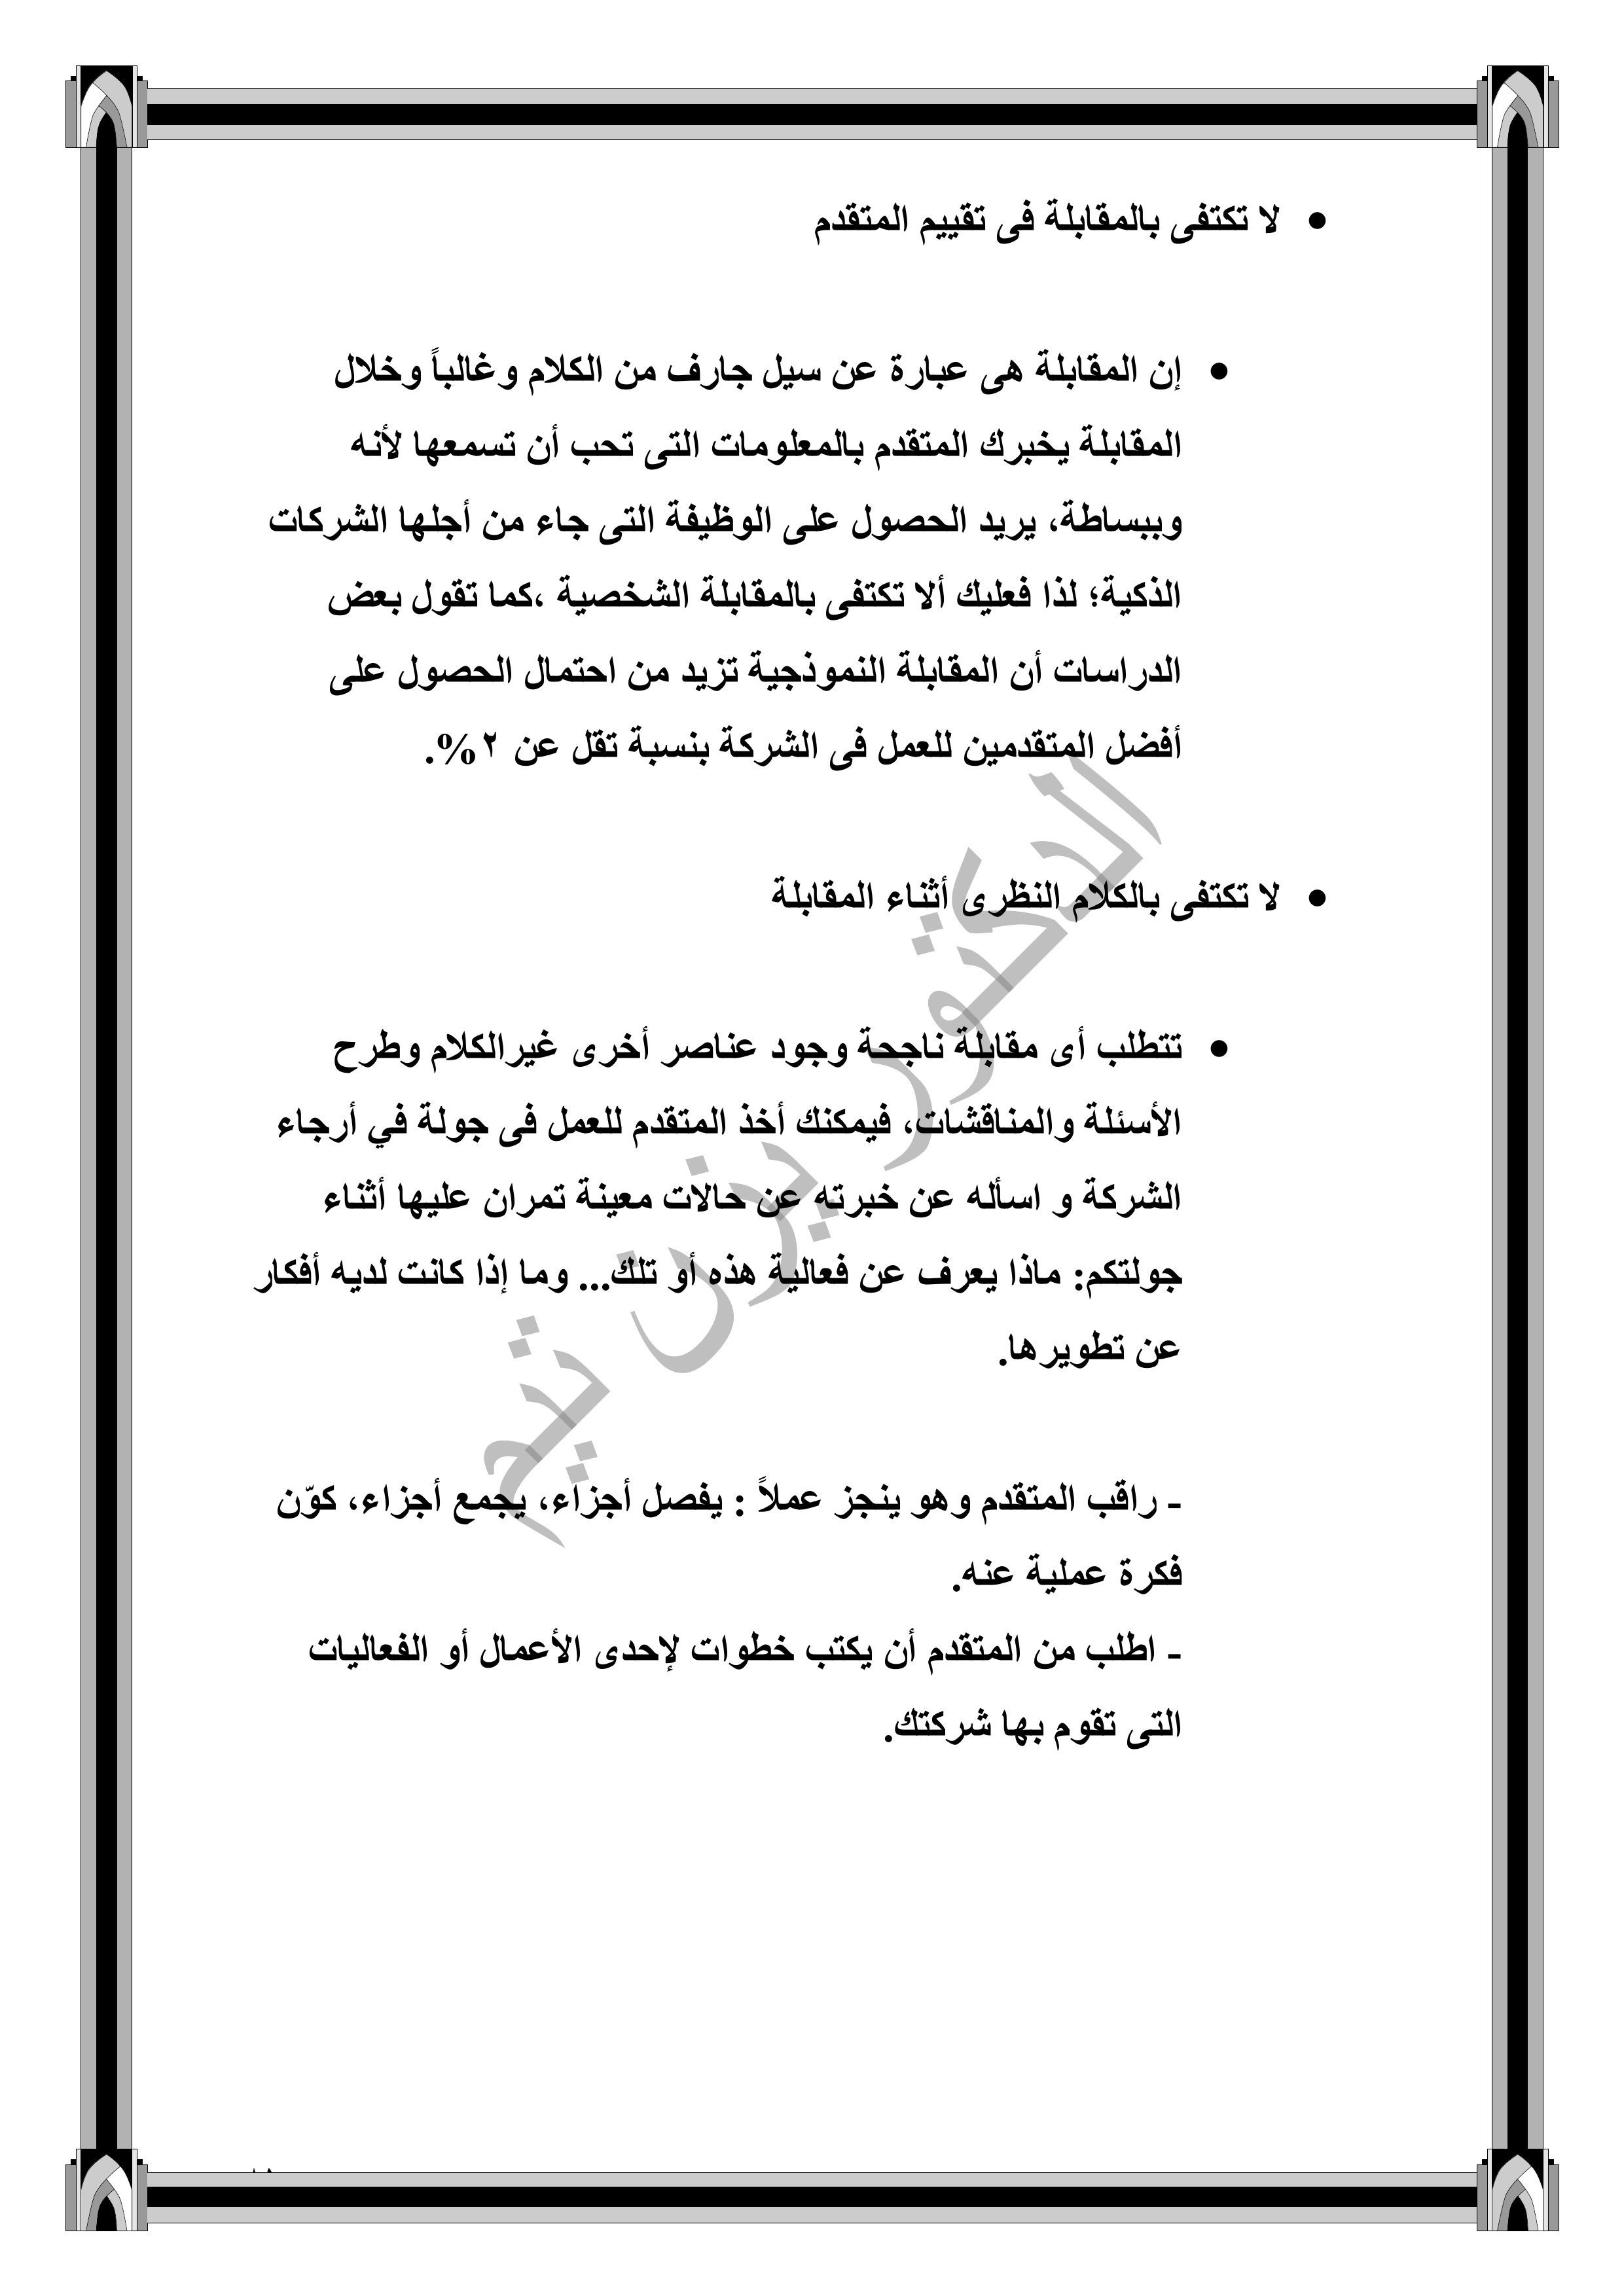 • لا تكتفى بالمقابلة فى تقييم المتقدم
• إن المقابلة هى عبارة عن سيل جارف من الكلام وغالباً وخلال
المقابلة يخبرك المتقدم بالمعلومات التى تحب أن تسمعها لأنه
وببساطة، يريد الحصول على الوظيفة التى جاء من أجلها الشركات
الذكية؛ لذا فعليك ألا تكتفى بالمقابلة الشخصية ،كما تقول بعض
الدراسات أن المقابلة النموذجية تزيد من احتمال الحصول على
أفضل المتقدمين للعمل فى الشركة بنسبة تقل عن ٢%.
• لا تكتفى بالكلام النظرى أثناء المقابلة
• تتطلب أى مقابلة ناجحة وجود عناصر أخرى غيرالكلام وطرح
الأسئلة والمناقشات، فيمكنك أخذ المتقدم للعمل فى جولة في أرجاء
الشركة و اسأله عن خبرته عن حالات معينة تمران عليها أثناء
جولتكم: ماذا يعرف عن فعالية هذه أو تلك... وما إذا كانت لديه أفكار
عن تطويرها.
- راقب المتقدم وهو ينجز عملاً : يفصل أجزاء، يجمع أجزاء، كوّن
فكرة عملية عنه.
- اطلب من المتقدم أن يكتب خطوات لإحدى الأعمال أو الفعاليات
التى تقوم بها شركتك.